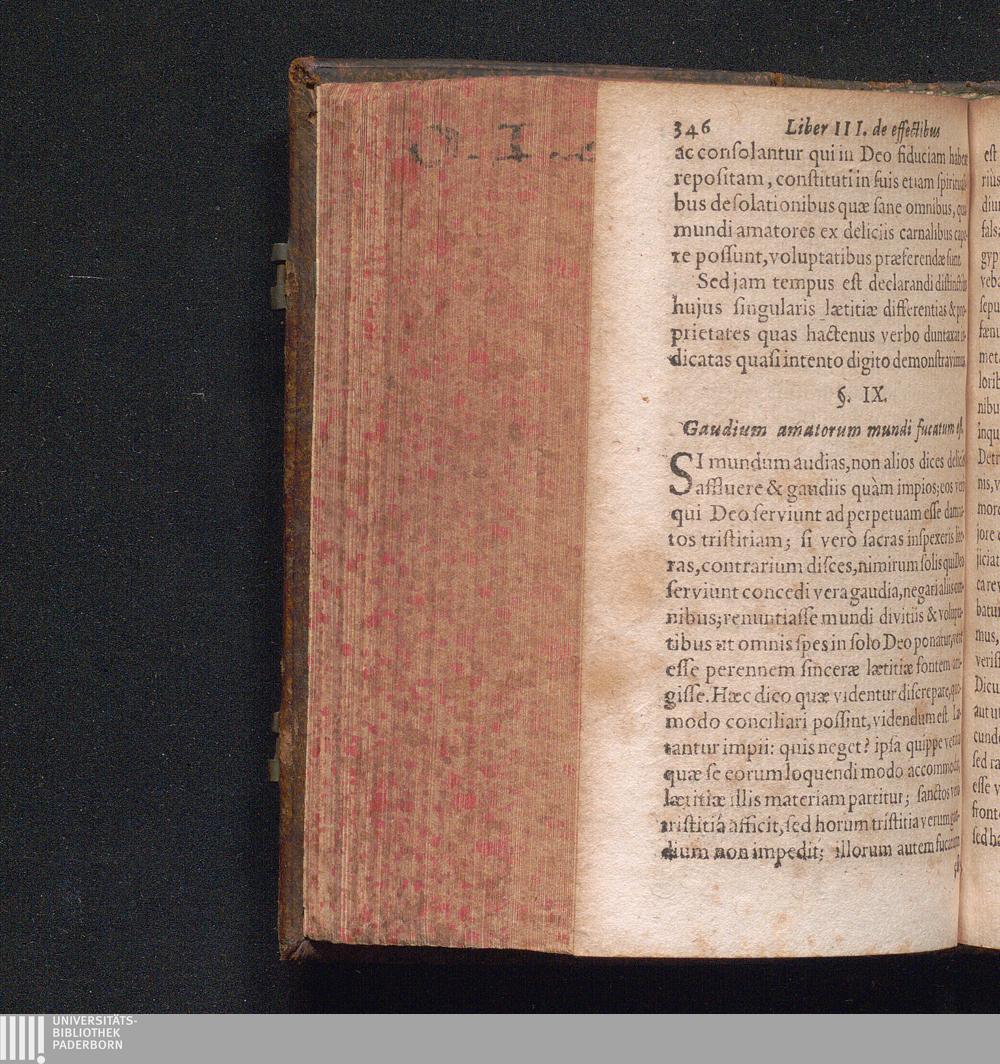 346 Liber III. de effectibus
ac consolantur qui in Deo fiduciam habent
repositam, constituti in suis etiam spirituali-
bus desolationibus quæ sane omnibus, quæ
mundi amatores ex deliciis carnalibus cape-
re possunt, voluptatibus præferendæ sunt.
Sed jam tempus est declarandi distinctius
hujus singularis lætitiæ differentias & pro-
prietates quas hactenus verbo duntaxat in-
dicatas quasi intento digito demonstravimus.
§. IX.
Gaudium amatorum mundi fucatum est.
SI mundum audias, non alios dices deliciis
affluere & gaudiis quàm impios; eos vero
qui Deo serviunt ad perpetuam esse damna-
tos tristitiam; si verò sacras inspexeris lite-
ras, contrarium disces, nimirum solis qui Deo
serviunt concedi vera gaudia, negari aliis om-
nibus; renuntiasse mundi divitiis & volupta-
tibus ut omnis spes in solo Deo ponatur,
esse perennem sinceræ lætitiæ fontem atti-
gisse. Hæc dico quæ videntur discrepare, quo-
modo conciliari possint, videndum est. Læ-
tantur impii: quis neget? ipsa quippe veritas
quæ se eorum loquendi modo accommodat,
lætitiæ illis materiam partitur; sanctos vero
tristitiâ afficit, sed horum tristitia verum gau-
dium non impedit; illorum autem fucatum
est
rius
gyp
sepu
fænu
lorib
nibu
inqu
Detr
nis, v
more
jore
jiciat
ca rev
batur
mus,
verisi
Dicu
aut u
cunde
sed ra
esse v
fronte
sed ha
UNIVERSITÄTS-
BIBLIOTHEK
PADERBORN